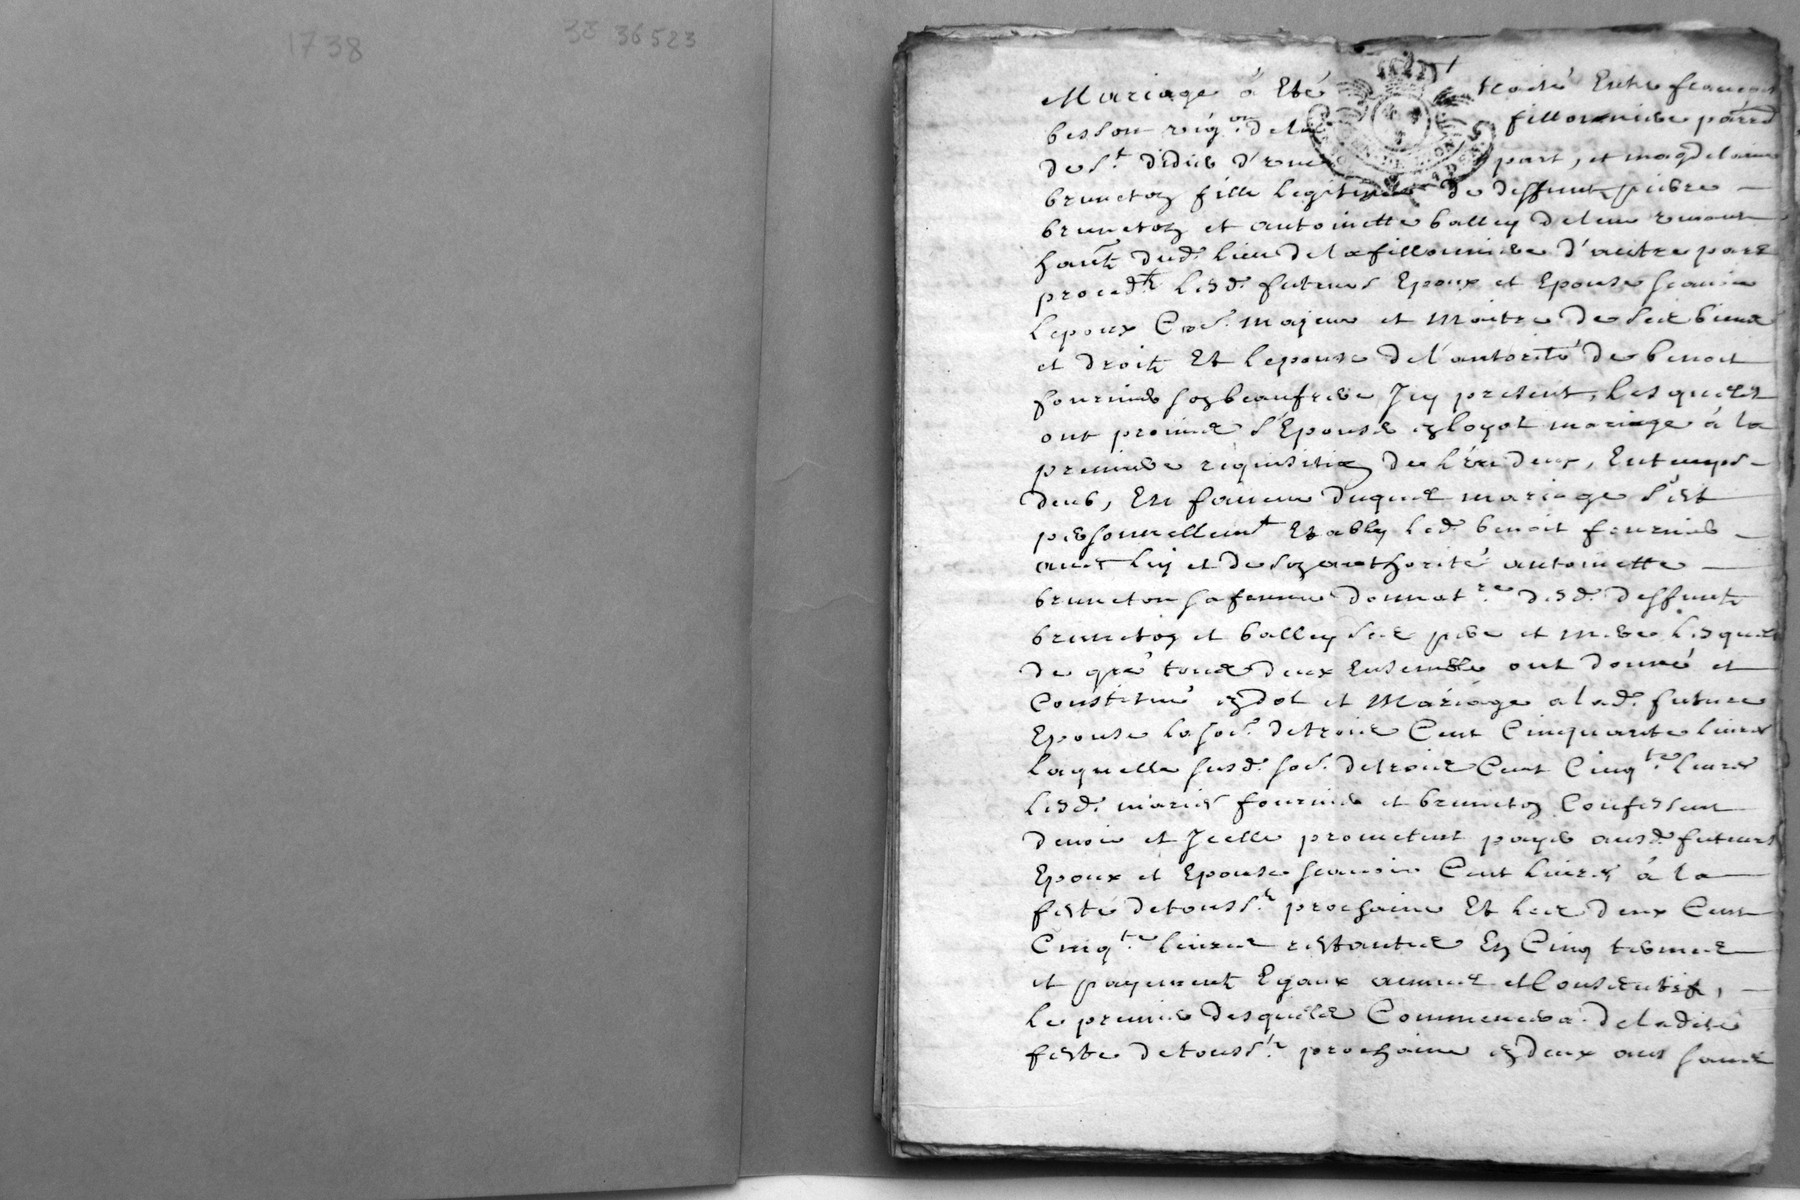 1738
3E 36523
Mariage a Eté traité Entre françois
besson vig.on de la fillonniere par.sse
de S.t didier d'une part, et magdelaine
bruneton fille legitime de deffunt pierre
bruneton et antoinette balley de leur vivant
hant dud. lieu de la fillonniere d'autre part
proced.t lesd. futurs Epoux et Epouse scavoir
lepoux Co.e majeur et Maitre de ses biens
et droits Et lepouse de l'autorité de benoit
fournier son beaufrere Jcy present, lesquels
ont promis s'Epouser en loyal mariage à la
premiere requisition de l'un deux, Entemps
deub, En faveur duquel mariage s'est
personnellem.t Etably led. benoit fournier
avec luy et de son authorité antoinette
bruneton sa femme donnat.re desd. deffunts
bruneton et balley ses pere et mere, lesquels
de gré tous deux Ensemble ont donné et
Constitué en dot et Mariage a lad. future
Epouse la so.e de trois Cent Cinquante livres
laquelle susd. so.e de trois Cent Cinq.te livres
lesd. mariés fournier et bruneton Confessent
devoir et Jcelle promettent payer ausd. futurs
Epoux et Epouse scavoir Cent livres à la
feste de touss.ts prochaine Et les deux Cent
Cinq.te livres restantes En Cinq termes
et payements Egaux annuels et Consecutifs,
le premier desquels Commencera de ladite
feste de touss.ts prochaine en deux ans sans